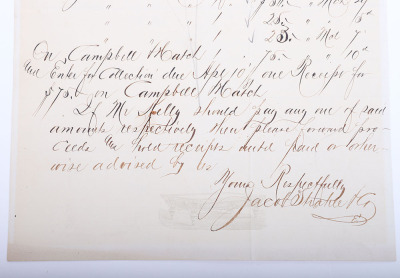 1 $ 50.. " Nov 29
1 " 25- " " 5"
1 " 25- " Mch 7"
On Campbell March 1 " 75.- " 10"
and Enter for Collection due Apl 10" one Receipt for
$75.- on Campbell March
If Mr should pay any one of said
amounts respectively then please forward pro-
ceeds and hold receipts until paid or other-
wise advised by us
Yours Respectfully
Jacob & Co